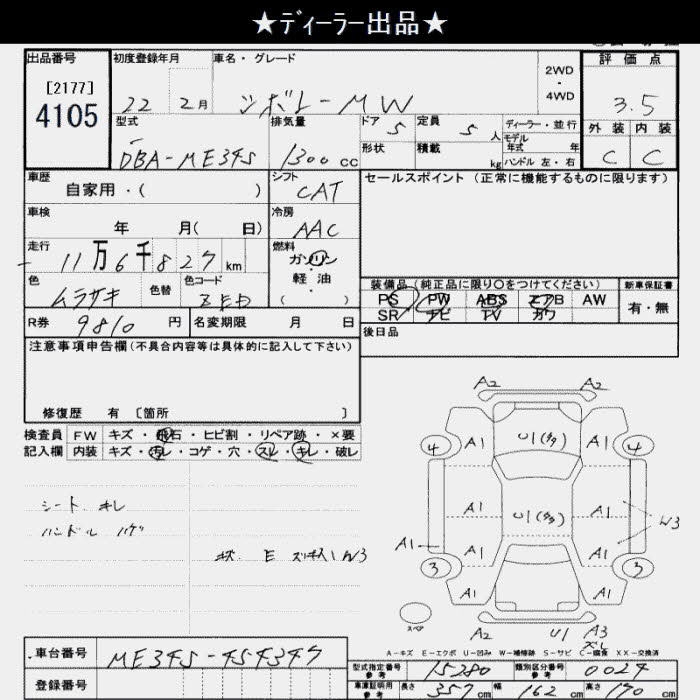 ★ディーラー出品★
出品番号 初度登録年月 車名・グレード 2WD - 4WD 評価点
[2177]
4105 22 2月 シボレーMW 3.5
型式 排気量 ドア 定員 ディーラー・並行 外装 内装
DBA-ME34S 1300cc 5 5人 モデル年式 年 C C
形状 積載 kg ハンドル 左・右
車歴 シフト セールスポイント(正常に機能するものに限ります)
自家用・( ) CAT
車検 冷房
年 月( 日) AAC
走行 燃料
11万6千827km ガソリン
軽油
( )
色 色替 色コード 装備品(純正品に限り○をつけてください) 新車保証書
ムラサキ PS PW ABS エアB AW 有・無
SR ナビ TV カワ
R券 9810円 名変期限 月 日 後日品
注意事項申告欄(不具合内容等は具体的に記入して下さい)
修復歴 有 〔箇所 〕
検査員 FW キズ・飛石・ヒビ割・リペア跡・×要
記入欄 内装 キズ・汚レ・コゲ・穴・スレ・キレ・破レ
シート キレ
ハンドル ハゲ
キズ E W3
A2 A2
4 A1 U1(多) A1 4
A1 U1(多) A1 W3
A1 A1 A1
3 A1 A1 3
スペア A2 U1 A3
A-キズ E-エクボ U-凹み W-補修跡 S-サビ C-腐食 XX-交換済
車台番号 ME34S-454347 型式指定番号 参考 15280 類別区分番号 参考 0024
登録番号 車庫証明用 参考 長さ 357cm 幅 162cm 高さ 170cm